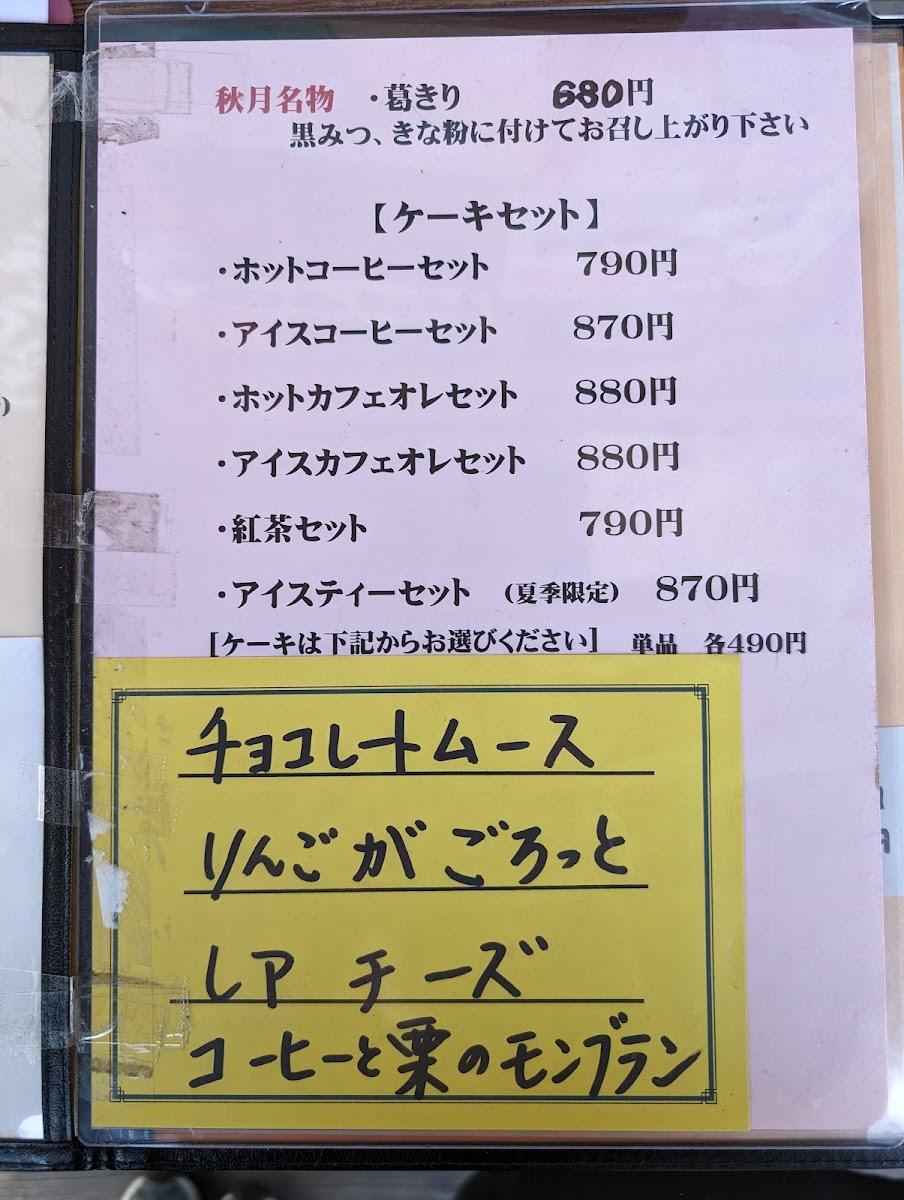 秋月名物 ・葛きり 680円
黒みつ、きな粉に付けてお召し上がり下さい
【ケーキセット】
・ホットコーヒーセット 790円
・アイスコーヒーセット 870円
・ホットカフェオレセット 880円
・アイスカフェオレセット 880円
・紅茶セット 790円
・アイスティーセット (夏季限定) 870円
[ケーキは下記からお選びください] 単品 各490円
チョコレートムース
りんごがごろっと
レアチーズ
コーヒーと栗のモンブラン